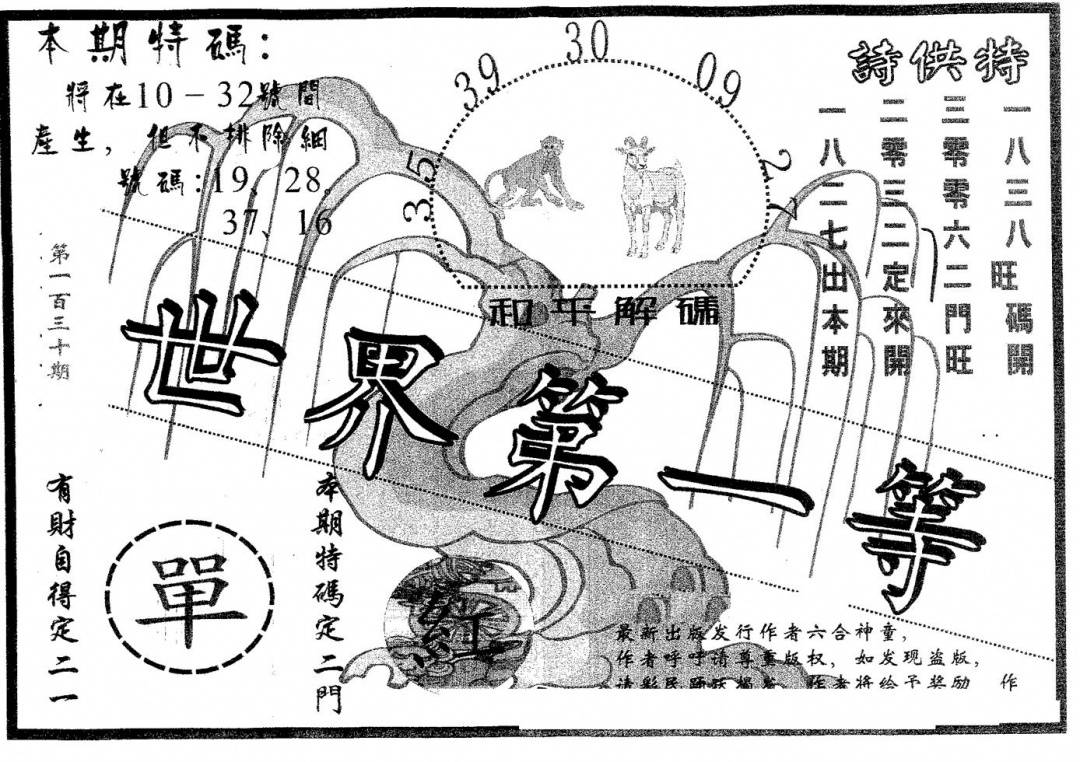 本期特碼:
將在10-32號間
產生,但不排除細
號碼:19、28。
37、16
第一百三十期
35 39 30 09 27
和平解碼
詩供特
一八三八旺碼開
三零零六二門旺
二零三二定來開
一八二七出本期
世界第一等
有財自得定二一
單
本期特碼定二門
紅
最新出版发行作者六合神童,
作者呼吁请尊重版权,如发现盗版,
请彩民踊跃揭发 作者将给予奖励 作